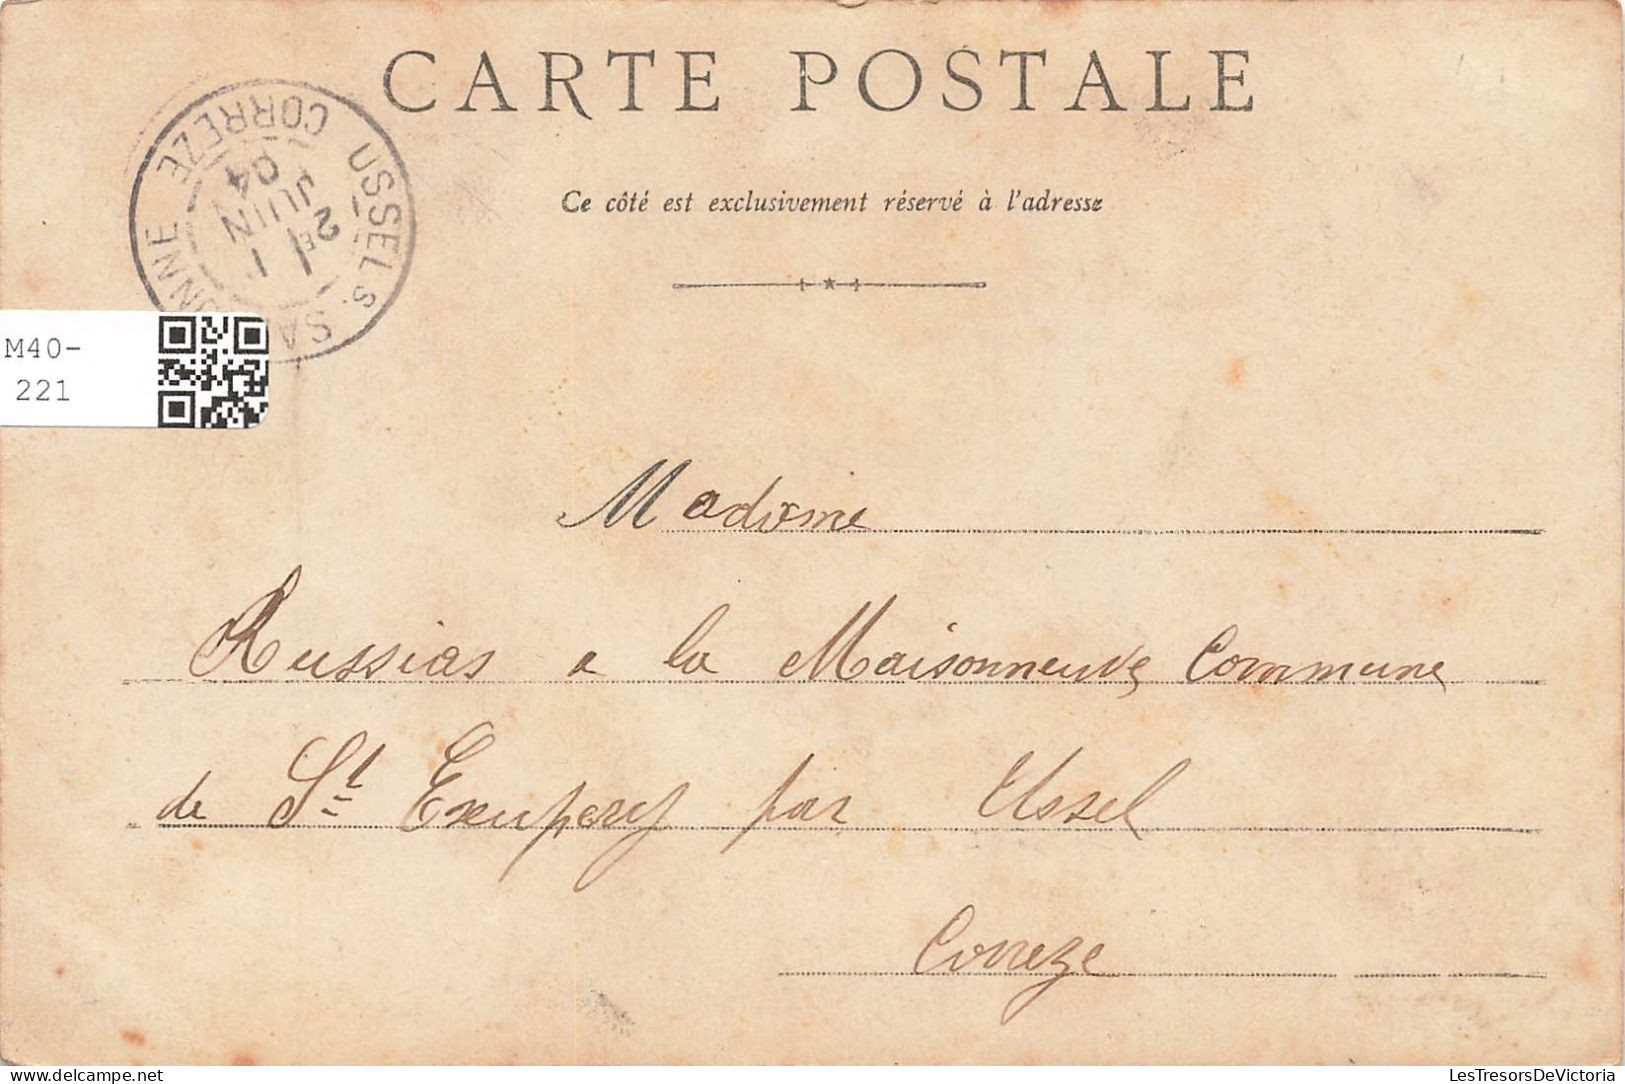 CARTE POSTALE
Ce côté est exclusivement réservé à l'adresse
USSEL S. SARSONNE CORREZE
2E
11
JUIN
04
M40-
221
Madame
Russias a la Maisonneuve Commune
de St Exupery par Ussel
Correze
LesTresorsDeVictoria